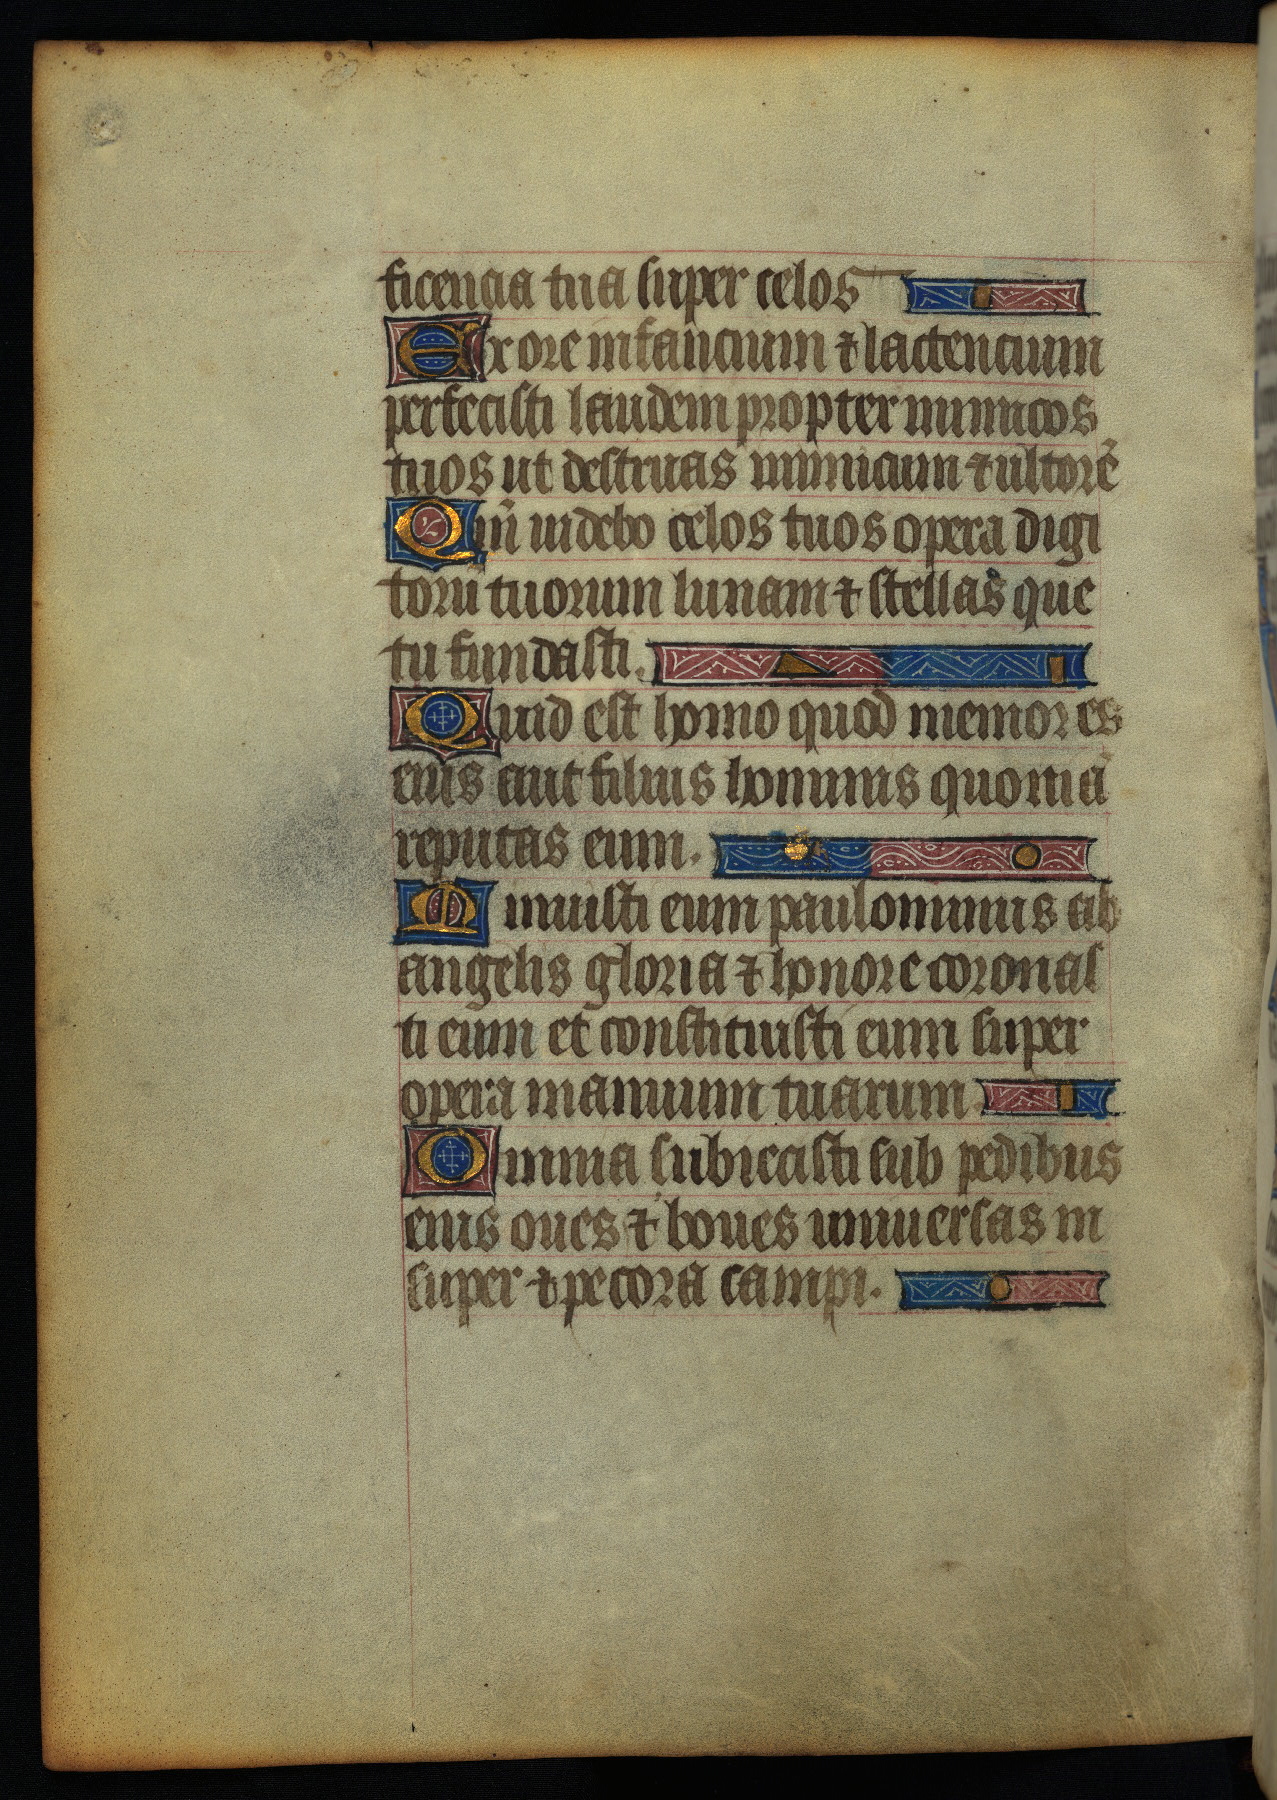 ficencia tua super celos
Ex ore infancium ⁊ lactencium
perfecisti laudem propter inimicos
tuos ut destruas inimicum ⁊ ultorē
Qm̄ uidebo celos tuos opera digi
torū tuorum lunam ⁊ stellas que
tu fundasti.
Quid est homo quod memor es
eius aut filius hominis quoniā
reputas eum.
Minuisti eum paulominus ab
angelis gloria ⁊ honore coronas
ti eum et constituisti eum super
opera manuum tuarum
Omnia subiecisti sub pedibus
eius oues ⁊ boues uniuersas in
super ⁊ pecora campi.